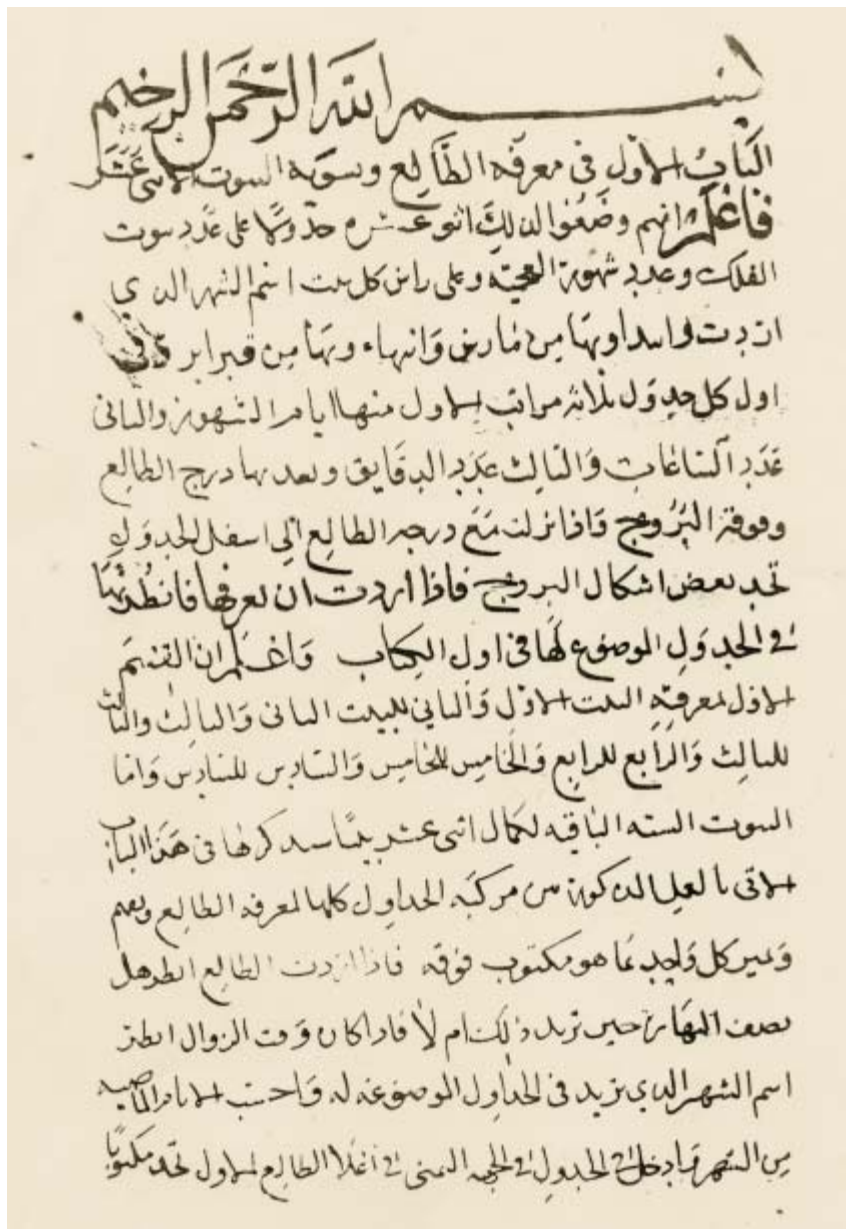 بسم الله الرحمن الرحيم
الباب الاول في معرفة الطالع وتسوية البيوت الاثنى عشر
فاعلم انهم وضعوا لذلك اثنو عشره جدولا على عدد بيوت
الفلك وعدد شهور العجمية وعلى راس كل بيت اسم الشهر الذي
اردت من مارس وانتهاء وها من فبراير وفي
اول كل جدول ثلاثة مراتب الاول منها ايام الشهور والثاني
عدد الساعات والثالث عدد الدقايق وبعدها درج الطالع
وفوقه البروج واذا نزلت مع درجه الطالع الى اسفل الجدول
تجد بعض اشكال البروج فاذا اردت ان تعرفها فانظرها
في الجدول الموضوع لها في اول الكتاب واعلم ان القسم
الاول لمعرفة البيت الاول والثاني للبيت الثاني والثالث والثالث
للثالث والرابع للرابع والخامس للخامس والسادس للسادس واما
البيوت السته الباقيه لكمال اثنى عشر بيتا سنذكرها في هذا الباب
الاتي مركبه الجداول كلها لمعرفة الطالع
وغير كل واحد بما هو مكتوب فوقه فاذا اردت الطالع انظر هل
نصف النهار حين تريد ذلك ام لا فاذا كان وقت الزوال انظر
اسم الشهر الذي تريد في الجداول الموضوعه له واحسب الايام الماضيه
من الشهر وادخل في الجدول في الجهه اليمنى في اعلا الطالع الاول تجد مكتوبا